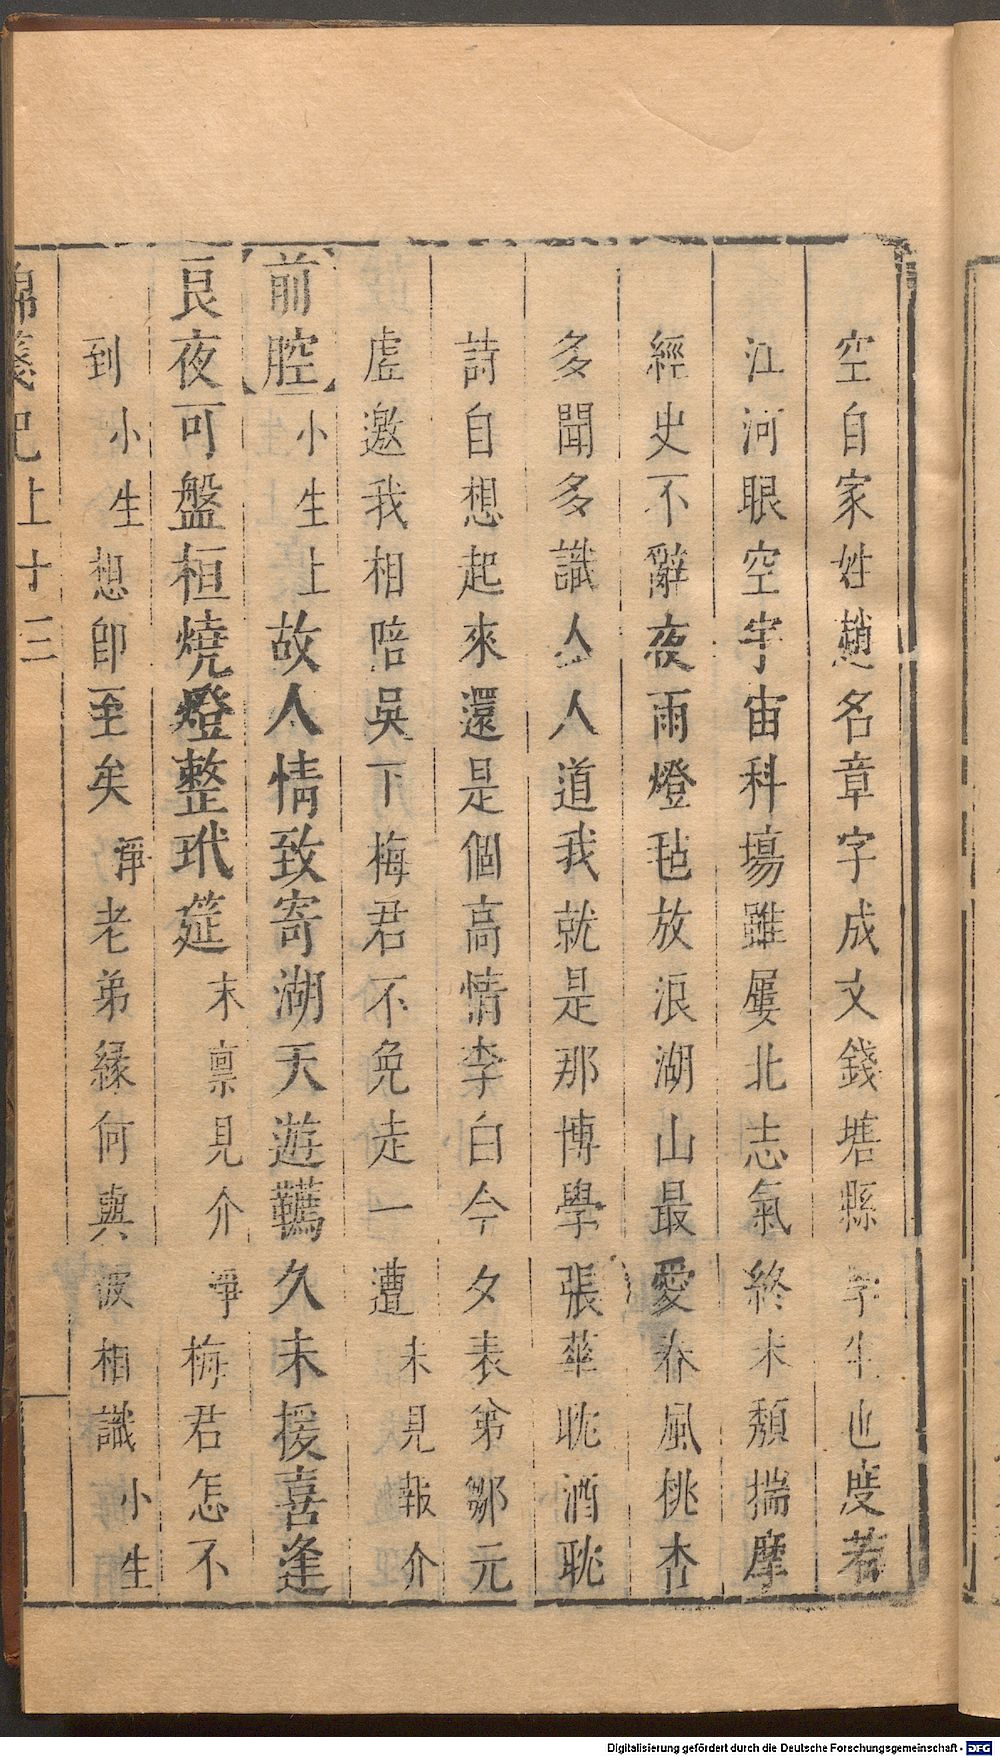 空自家姓趙名章字成文錢塘縣學生也度若
江河眼空宇宙科塲雖屢北志氣終未頹揣摩
經史不辭夜雨燈毡放浪湖山最愛春風桃杏
多聞多識人人道我就是那博學張華耽酒耽
詩自想起來還是個高情李白今夕表弟鄒元
虛邀我相陪吳下梅君不免走一遭末見報介
【前腔】小生上故人情致寄湖天遊鞿久未援喜逢
良夜可盤桓燒燈整玳筵末禀見介淨梅君怎不
到小生想卽至矣淨老弟緣何與彼相識小生
錦箋記上十三
Digitalisierung gefördert durch die Deutsche Forschungsgemeinschaft - DFG